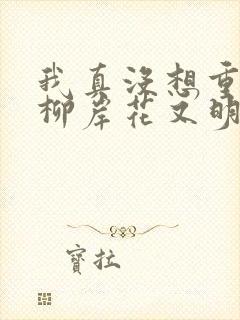 我真没想重
柳岸花又明
寳拉